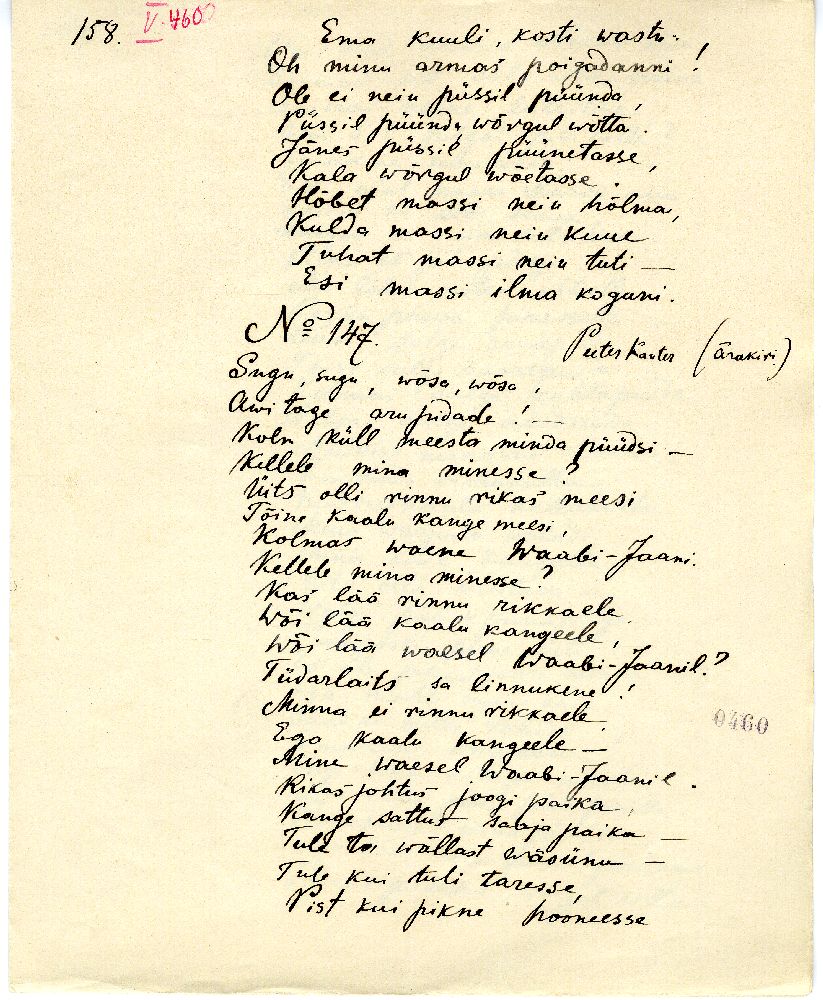 158. V. 460
Ema kuuli, kosti wastu:
Oh minu armas poigadanni!
Ole ei neiu püssil püünda,
Püssil püünda, wõrgul wõtta.
Jänes püssil püünetasse,
Kala wõrgul wõetasse.
Hõbet massi neiu hõlma,
Kulda massi neiu kuue
Tuhat massi neiu tuti —
Esi massi ilma koguni.
No 147. Peeter Kanter (ärakiri)
Sugu, sugu, wõsa, wõsa,
Awitage aru pidade! —
Kolm küll meesta minda püüdsi —
Kellele mina minesse?
Üits olli rinnu rikas meesi
Tõine kaalu kange meesi,
Kolmas waene Waabi-Jaani.
Kellele mina minesse?
Kas lää rinnu rikkaele
Wõi lää kaalu kangeele,
Wõi lää waesel Waabi-Jaanil?
Tüdarlaits sa linnukene!
Minna ei rinnu rikkaele
Ega kaalu kangeele —
Mine waesel Waabi-Jaanil.
Rikas johtus joogi paika,
Kange sattus saaja paika —
Tule ta wällast wäsünu —
Tule kui tuli taresse,
Pist kui pikne hooneesse
0460